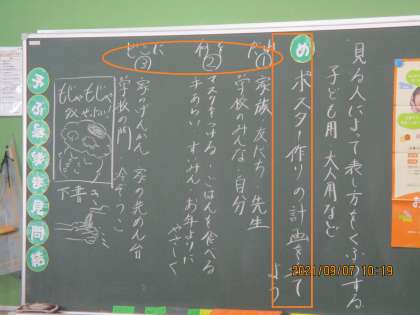 見る人によって表し方をくふうする
子ども用 大人用など
め ポスター作りの計画を立てよう
①
家族・友だち・先生
学校のみんな・自分
②何を
マスクをつける・ごはんを食べる
手あらい・すいみん・お年よりに
やさしく
③どこに
家のげんかん・家の洗めん台
学校の門
もじゃもじゃ
下書き
見
問
2021/09/07 10:19